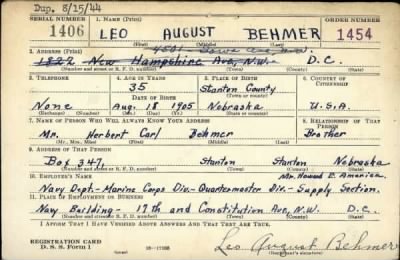 Dup. 8/15/44
SERIAL NUMBER 1. NAME (Print) ORDER NUMBER
1406 LEO AUGUST BEHMER 1454
(First) (Middle) (Last)
4501 - Iowa Ave N.W.
2. ADDRESS (Print)
1822 New Hampshire Ave, N.W. D.C.
(Number and street or R. F. D. number) (Town) (County) (State)
3. TELEPHONE 4. AGE IN YEARS 5. PLACE OF BIRTH 6. COUNTRY OF CITIZENSHIP
35 Stanton County
DATE OF BIRTH
None Aug. 18 1905 Nebraska U.S.A.
(Exchange) (No.) (Mo.) (Day) (Yr.) (State or country)
7. NAME OF PERSON WHO WILL ALWAYS KNOW YOUR ADDRESS 8. RELATIONSHIP OF THAT PERSON
Mr. Herbert Carl Behmer Brother
(Mr., Mrs., Miss) (First) (Middle) (Last)
9. ADDRESS OF THAT PERSON
Box 347, Stanton Stanton Nebraska
(Number and street or R. F. D. number) (Town) (County) (State)
10. EMPLOYER'S NAME Mr. Howard E. America
Navy Dept. - Marine Corps Div. - Quartermaster Div. - Supply Section.
11. PLACE OF EMPLOYMENT OR BUSINESS
Navy Building - 17th and Constitution Ave, N.W. D.C.
(Number and street or R. F. D. number) (Town) (County) (State)
I AFFIRM THAT I HAVE VERIFIED ABOVE ANSWERS AND THAT THEY ARE TRUE.
REGISTRATION CARD
D. S. S. Form 1 (over) Leo August Behmer
(Registrant's signature)